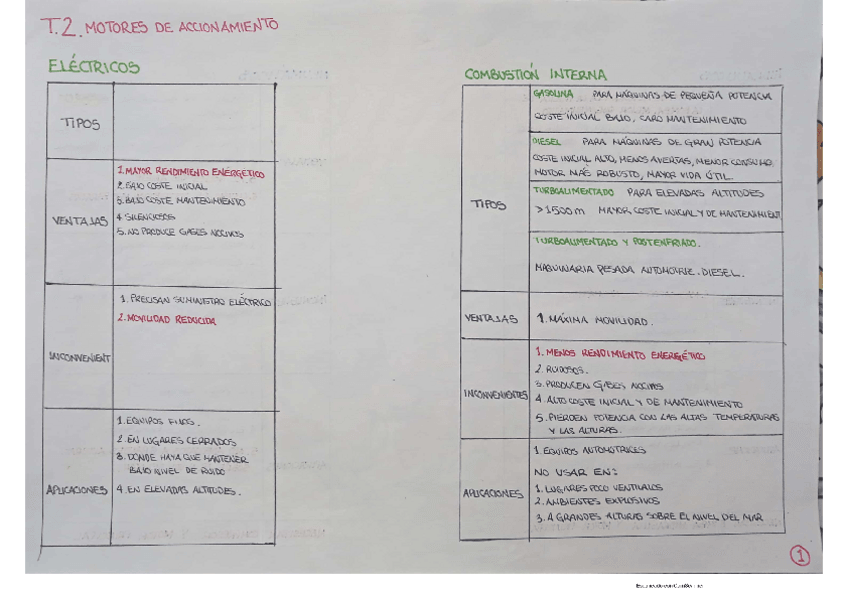 T.2. MOTORES DE ACCIONAMIENTO
ELÉCTRICOS
TIPOS
VENTAJAS
1. MAYOR RENDIMIENTO ENERGÉTICO
2. BAJO COSTE INICIAL
3. BAJO COSTE MANTENIMIENTO
4 SILENCIOSOS
5. NO PRODUCE GASES NOCIVOS
INCONVENIENT
1. PRECISAN SUMINISTRO ELÉCTRICO
2. MOVILIDAD REDUCIDA
APLICACIONES
1. EQUIPOS FIJOS.
2. EN LUGARES CERRADOS
3. DONDE HAYA QUE MANTENER
BAJO NIVEL DE RUIDO
4. EN ELEVADAS ALTITUDES.
COMBUSTIÓN INTERNA
TIPOS
GASOLINA PARA MÁQUINAS DE PEQUEÑA POTENCIA
COSTE INICIAL BAJO, CARO MANTENIMIENTO
DIESEL PARA MÁQUINAS DE GRAN POTENCIA
COSTE INICIAL ALTO, MENOS AVERÍAS, MENOR CONSUMO
MOTOR MÁS ROBUSTO, MAYOR VIDA ÚTIL
TURBOALIMENTADO PARA ELEVADAS ALTITUDES
>1500 m MAYOR COSTE INICIAL Y DE MANTENIMIENT
TURBOALIMENTADO Y POSTENFRIADO.
MAQUINARIA PESADA AUTOMOTRIZ. DIESEL.
VENTAJAS
1. MÁXIMA MOVILIDAD.
INCONVENIENTES
1. MENOS RENDIMIENTO ENERGÉTICO
2. RUIDOSOS.
3. PRODUCEN GASES NOCIVOS
4. ALTO COSTE INICIAL Y DE MANTENIMIENTO
5. PIERDEN POTENCIA CON LAS ALTAS TEMPERATURAS
Y LAS ALTURAS.
APLICACIONES
1. EQUIPOS AUTOMOTRICES
NO USAR EN:
1. LUGARES POCO VENTILADOS
2. AMBIENTES EXPLOSIVOS
3. A GRANDES ALTURAS SOBRE EL NIVEL DEL MAR
1
Escaneado con CamScanner